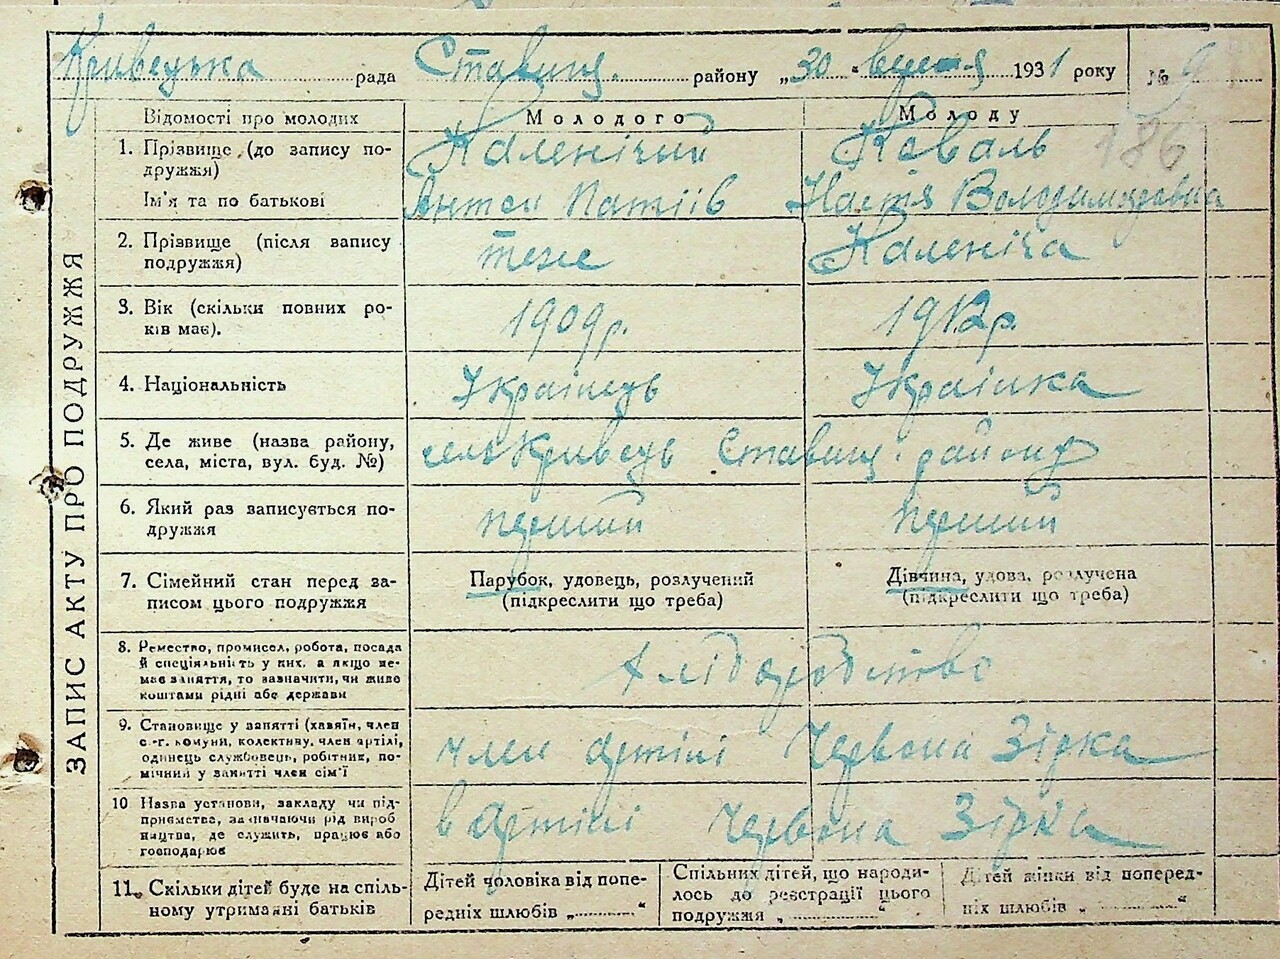 Кривецька рада Ставищ. району „30“ вересня 1931 року № 9
186
ЗАПИС АКТУ ПРО ПОДРУЖЖЯ
Відомості про молодих
Молодого
Молоду
1. Прізвище (до запису по-
дружжя)
Каленічий
Коваль
Ім'я та по батькові
Антон
Настя Володимировна
2. Прізвище (після запису
подружжя)
теже
Каленіча
3. Вік (скільки повних ро-
ків має).
1909 р.
1912 р.
4. Національність
Українець
Українка
5. Де живе (назва району,
села, міста, вул. буд. №)
село Кривець Ставищ. району
6. Який раз записується по-
дружжя
перший
перший
7. Сімейний стан перед за-
писом цього подружжя
Парубок, удовець, розлучений
(підкреслити що треба)
Дівчина, удова, розлучена
(підкреслити що треба)
8. Ремество, промисел, робота, посада
й спеціяльність у них, а якщо не-
має заняття, то зазначити, чи живе
коштами рідні або держави
хліборобство
9. Становище у занятті (хазяїн, член
с.-г. комуни, колективу, член артілі,
одинець службовець, робітник, по-
мічний у занятті член сім'ї
член артілі Червона Зірка
10 Назва установи, закладу чи під-
приємства, зазначаючи рід вироб
ництва, де служить, працює або
господарює
в Артілі Червона Зірка
11. Скільки дітей буде на спіль-
ному утриманні батьків
Дітей чоловіка від попе-
редніх шлюбів „ “
Спільних дітей, що народи-
лось до реєстрації цього
подружжя „ “
Дітей жінки від поперед-
ніх шлюбів „ “